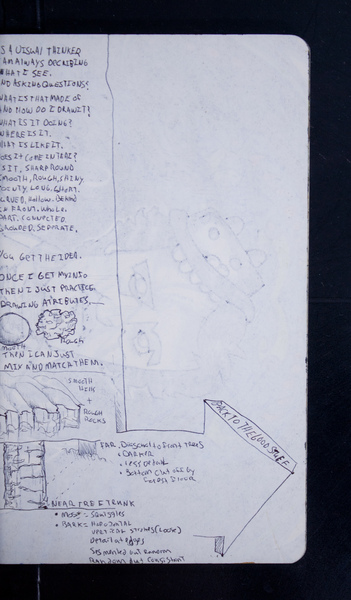 S A VISUAL THINKER
I AM ALWAYS DESCRIBING
WHAT I SEE.
AND ASKING QUESTIONS!
WHAT IS THAT MADE OF
AND HOW DO I DRAW IT?
WHAT IS IT DOING?
WHERE IS IT.
WHAT IS LIKE IT.
DOES IT COME IN THREE?
IS IT, SHARP ROUND
SMOOTH, ROUGH, SHINY
POINTY, LONG, SHORT.
CURVED, HOLLOW, BEHIND
IN FRONT. WHOLE.
PART. CONNECTED
GROUPED. SEPERATE.
YOU GET THE IDEA.
ONCE I GET MY INFO
THEN I JUST PRACTICE
DRAWING ATRIBUTES.
SMOOTH
ROUGH
THEN I CAN JUST
MIX AND MATCH THEM.
SMOOTH
+
ROUGH
ROCKS
BACK TO THE GOOD STUFF
FAR
TREES
• DARKER
• LESS DETAIL
• BOTTOM
FOREST FLOOR
NEAR TREE TRUNK
• MOSS = SQUIGGLES
• BARK = HORIZONTAL
VERTICAL STROKES (LOOSE)
DETAIL AT EDGES
SEGMENTED BUT RANDOM
RANDOM BUT CONSISTANT